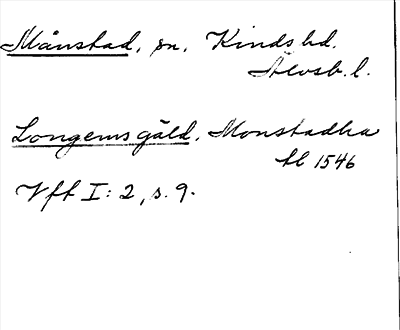 Månstad, sn, Kinds hd.
Älvsb. l.
Longems gäld, Monstadha
tl 1546
Vft I: 2, s. 9.